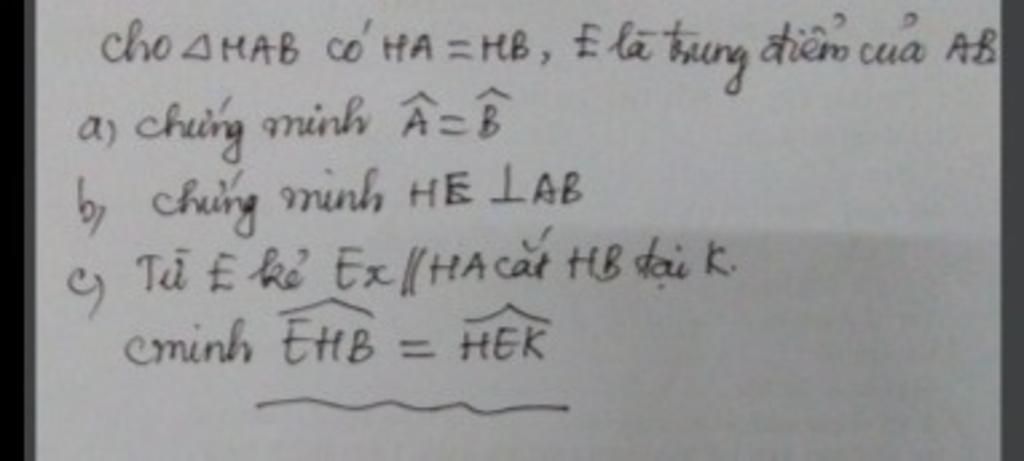 cho △HAB có HA = HB, E là trung điểm của AB
a) chứng minh Â = B̂
b) chứng minh HE ⊥ AB
c) Từ E kẻ Ex // HA cắt HB tại K.
cminh \widehat{EHB} = \widehat{HEK}